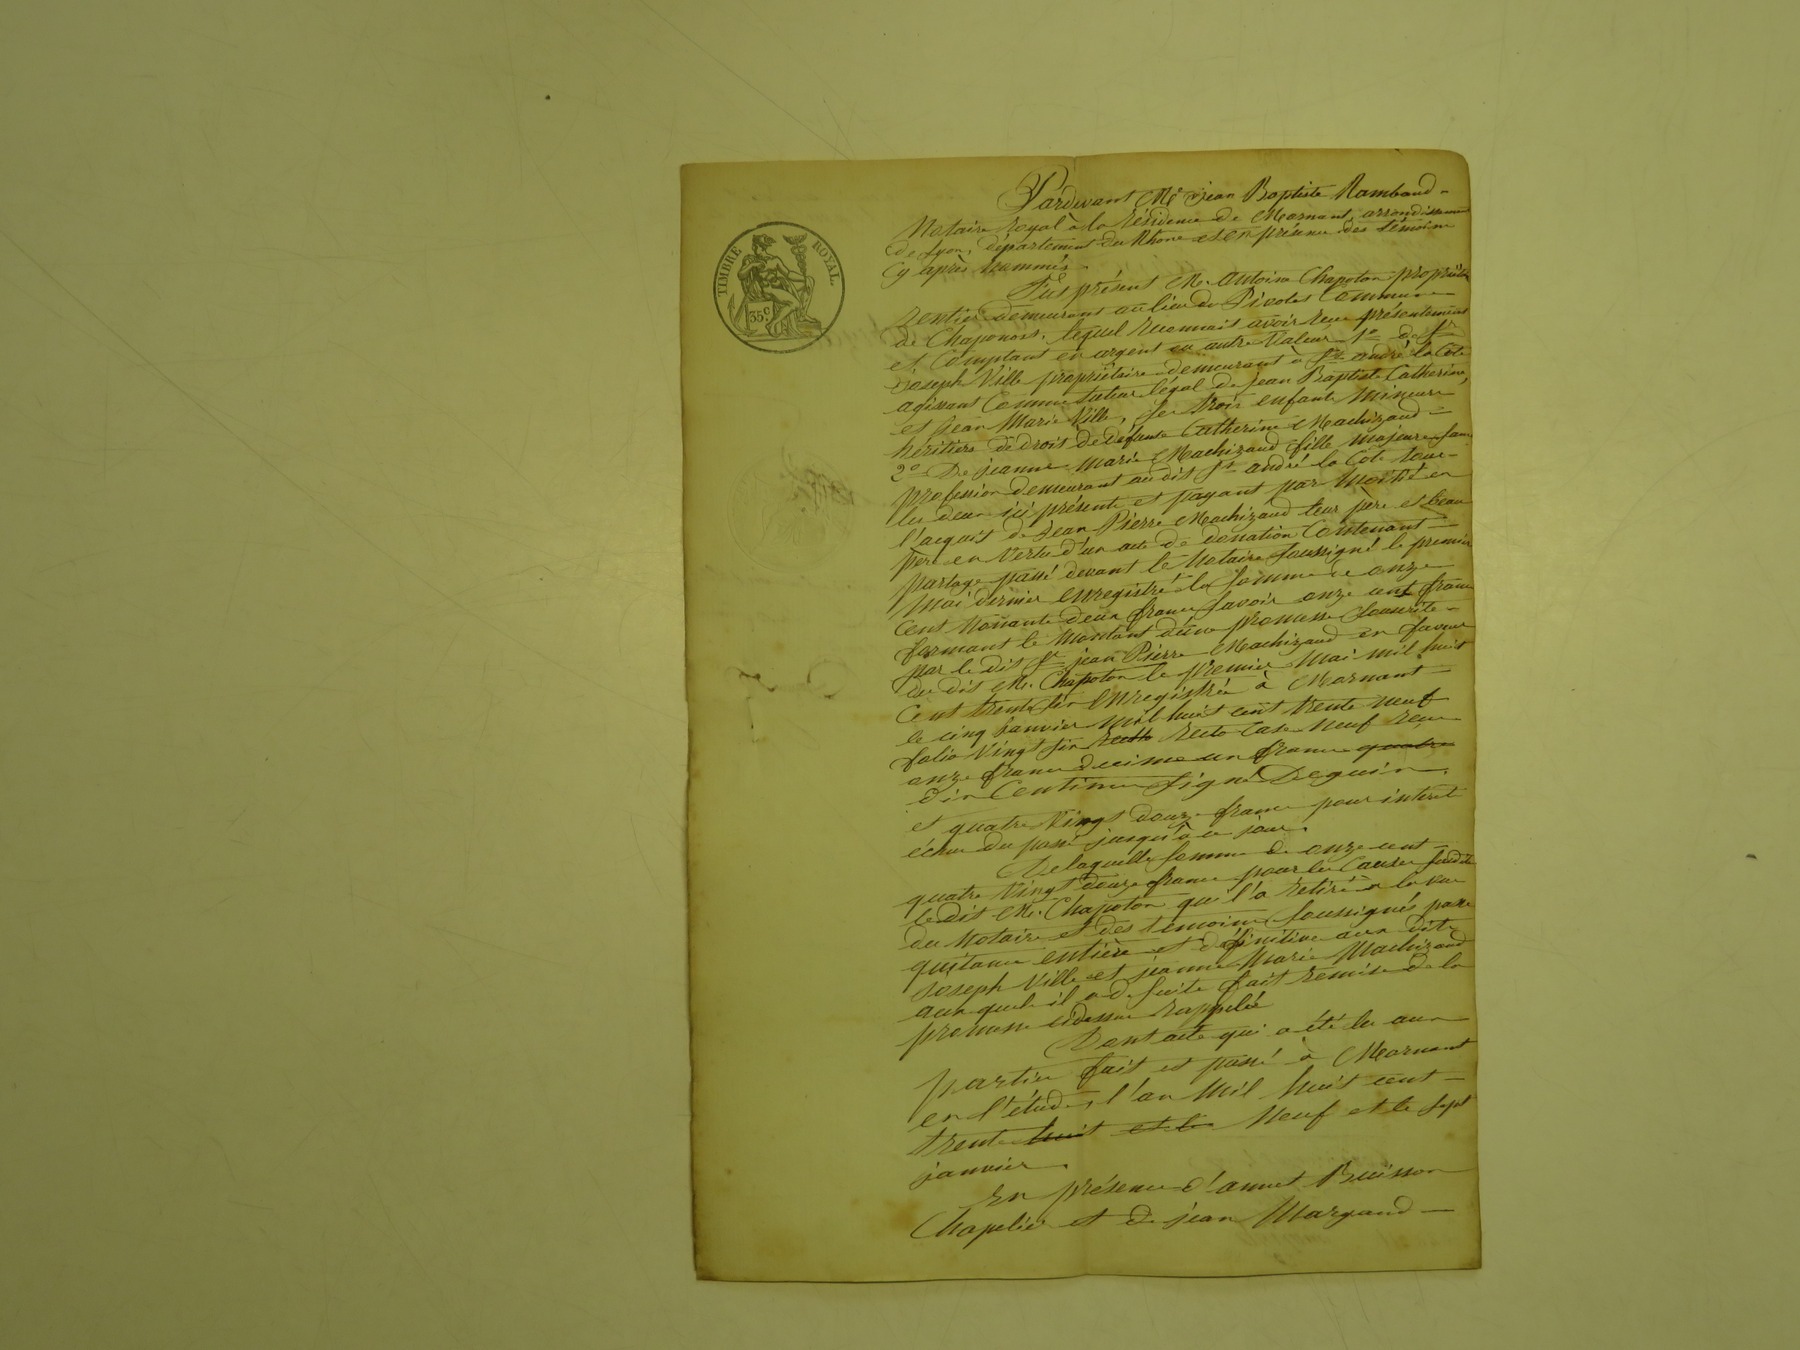 TIMBRE ROYAL
35 c.
Pardevant Me Jean Baptiste Rambaud
Notaire royal à la résidence de Mornant, arrondissement
de Lyon, département du Rhône et en présence des témoins
cy après nommés.
Fut présent Mr. Antoine Chapoton propriétaire
rentier demeurant au lieu du Pivolet Commune
de Chaponost, lequel reconnait avoir reçu présentement
et comptant en argent ou autre valeur 1o de Sr
Joseph Ville propriétaire demeurant à St andré la Côte
agissant comme tuteur légal de jean Baptiste Catherine,
et jean Marie Ville, ses trois enfants mineurs
héritiers de droit de défunte Catherine Machizaud
2o De jeanne marie Machizaud fille majeure sans
profession demeurant au dit St andré la Côte tous
les deux ici présents et payant par moitié en
l'acquit de Jean Pierre Machizaud leur père et beau
père en vertu d'un acte de donation Contenant
partage passé devant le Notaire soussigné le premier
mai dernier enregistré la somme de onze
cent nonante deux francs savoir onze cent francs
formant le montant d'une promesse souscrite
par le dit Sr jean Pierre Machizaud en faveur
du dit Mr. Chapoton le premier mai mil huit
cent trente six enregistrée à Mornant
le cinq janvier mil huit cent trente neuf
folio vingt six recto Case neuf reçu
onze francs decime un franc quatre
dix Centimes signé Deguin.
et quatre vingt douze francs pour interet
échus du passé jusqu'à ce jour.
De laquelle somme de onze cent
quatre vingt douze francs pour les Causes susdites
le dit Mr. Chapoton qui l'a retirée à la vue
du Notaire et des témoins soussignés passe
quitance entière et définitive aux dits
Joseph Ville et jeanne Marie Machizaud
aux quels il a de suite fait remise de la
promesse cidessus rappelée
Dont acte qui a été lu aux
parties fait et passé à Mornant
en l'étude, l'an mil huit cent
trente huit et le Neuf et le sept
janvier.
En présence d'annet Buisson
Chapelier et de jean Margand